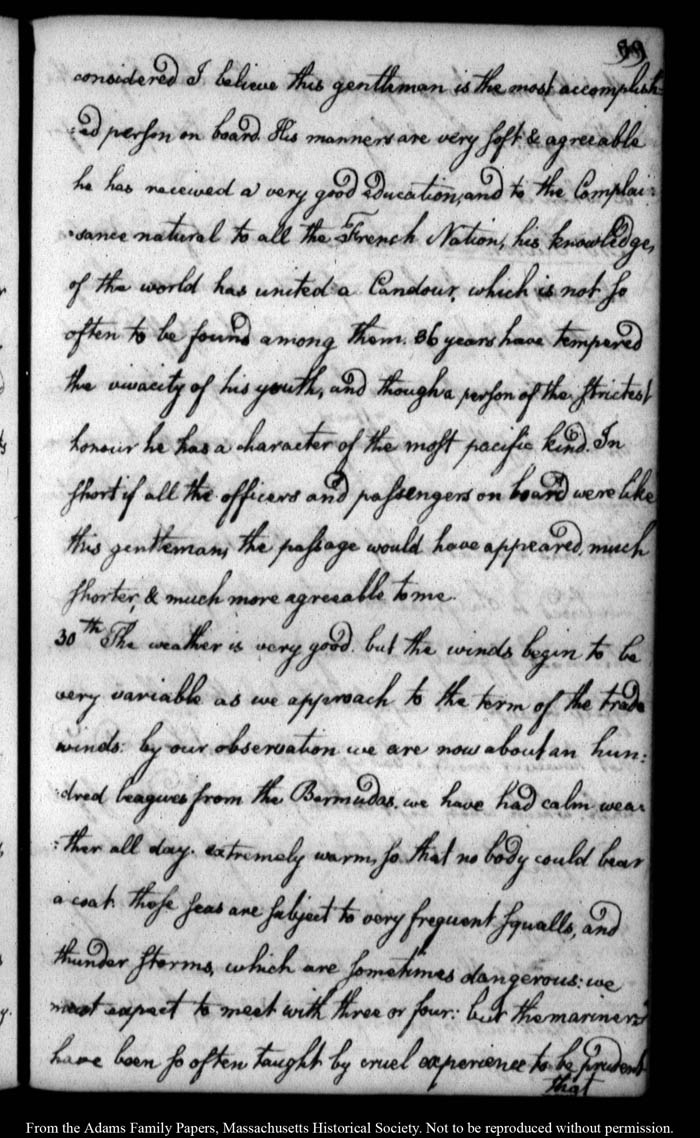 99
considered I believe this gentleman is the most accomplish-
:ed person on board. His manners are very soft & agreeable
he has received a very good education, and to the Complai:
:sance natural to all the French Nation, his knowledge,
of the world has united a Candour, which is not so
often to be found among them. 36 years have tempered
the vivacity of his youth, and though a person of the strictest
honour he has a character of the most pacific kind. In
short if all the officers and passengers on board were like
this gentleman, the passage would have appeared, much
shorter, & much more agreeable to me.
30th The weather is very good. but the winds begin to be
very variable as we approach to the term of the trade
winds: by our observation we are now about an hun:
:dred leagues from the Bermudas. we have had calm wea:
:ther all day. extremely warm, so that no body could bear
a coat. these seas are subject to very frequent squalls, and
thunder storms, which are sometimes dangerous: we
must expect to meet with three or four: but the mariners
have been so often taught by cruel experience to be prudent
that
From the Adams Family Papers, Massachusetts Historical Society. Not to be reproduced without permission.